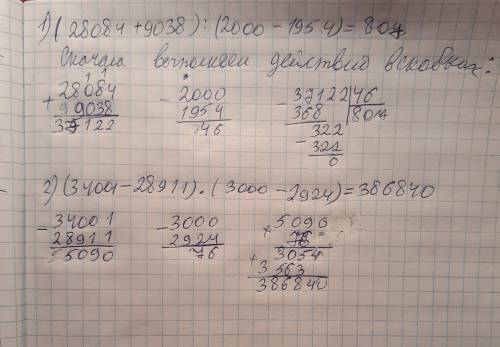 1) (28084 + 9038) : (2000 - 1954) = 807
Сначала выполняем действия в скобках:
28084 + 9038 = 37122
2000 - 1954 = 46
37122 | 46
368 | 807
322
322
0
2) (34001 - 28911) · (3000 - 2924) = 386840
34001 - 28911 = 5090
3000 - 2924 = 76
× 5090
76
+ 3054
3563
386840